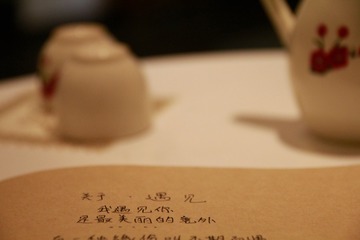 关于·遇见
我遇见你
是最美丽的意外